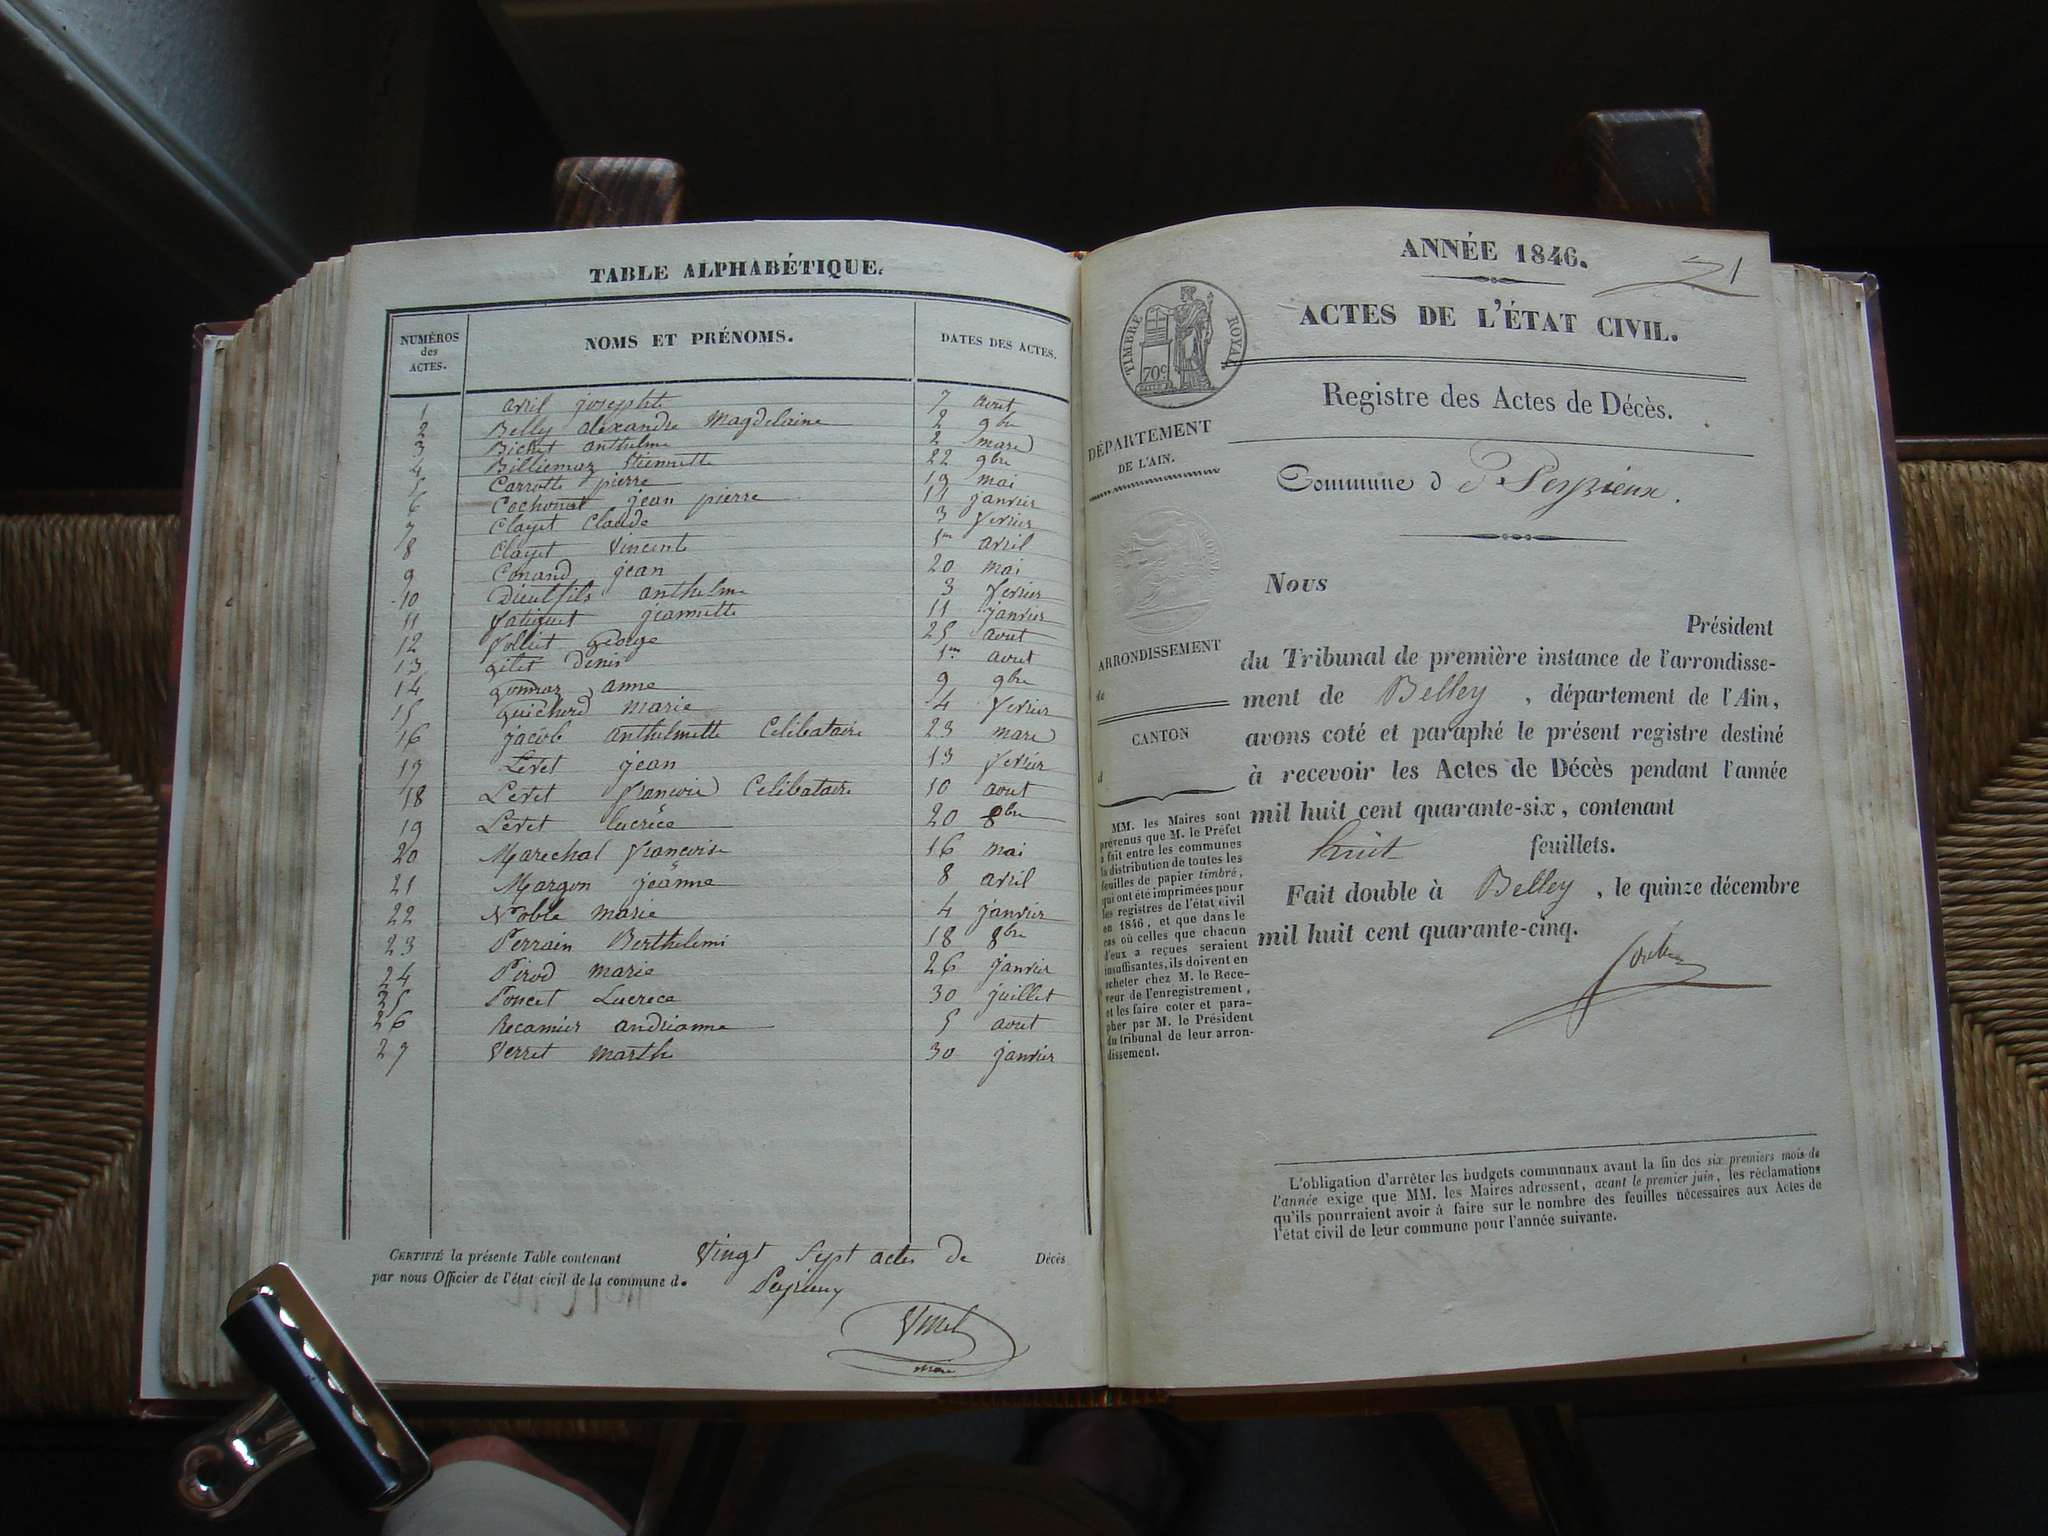 TABLE ALPHABÉTIQUE.
NUMÉROS des ACTES. NOMS ET PRÉNOMS. DATES DES ACTES.
1 avril josephte 7 aout
2 Belly alexandre Magdelaine 2 9bre
3 Bichet anthelme 2 mars
4 Billiemaz Etiennette 22 9bre
5 Carrotte pierre 19 mai
6 Cochonat jean pierre 11 janvier
7 Clayet Claude 3 fevrier
8 Clayet Vincent 1er avril
9 Conand jean 20 mai
10 Dieutfils anthelme 3 fevrier
11 jeannette 11 janvier
12 folliet George 25 aout
13 gilet Denis 1er aout
14 gonnaz anne 9 9bre
15 guicherd marie 4 fevrier
16 jacob anthelmette Celibataire 23 mars
17 Levet jean 13 fevrier
18 Levet francois Celibataire 10 aout
19 Levet lucrèce 20 8bre
20 Marechal françoise 16 mai
21 Margon jeanne 8 avril
22 Noble marie 4 janvier
23 Perrain Berthelemi 18 8bre
24 Pirod marie 26 janvier
25 Poncet Lucrece 30 juillet
26 Recamier andrianne 5 aout
27 Verret marthe 30 janvier
CERTIFIÉ la présente Table contenant Vingt Sept actes de Décès
par nous Officier de l'état civil de la commune d. Peyrieux
maire
ANNÉE 1846.
21
ACTES DE L'ÉTAT CIVIL.
TIMBRE ROYAL
70c
Registre des Actes de Décès.
DÉPARTEMENT
DE L'AIN.
Commune d e Peyzieux.
ARRONDISSEMENT
de
CANTON
d
MM. les Maires sont
prévenus que M. le Préfet
a fait entre les communes
la distribution de toutes les
feuilles de papier timbré,
qui ont été imprimées pour
les registres de l'état civil
en 1846, et que dans le
cas où celles que chacun
d'eux a reçues seraient
insuffisantes, ils doivent en
acheter chez M. le Rece-
veur de l'enregistrement,
et les faire coter et para-
pher par M. le Président
du tribunal de leur arron-
dissement.
Nous
Président
du Tribunal de première instance de l'arrondisse-
ment de Belley, département de l'Ain,
avons coté et paraphé le présent registre destiné
à recevoir les Actes de Décès pendant l'année
mil huit cent quarante-six, contenant
huit feuillets.
Fait double à Belley, le quinze décembre
mil huit cent quarante-cinq.
L'obligation d'arrêter les budgets communaux avant la fin des six premiers mois de
l'année exige que MM. les Maires adressent, avant le premier juin, les réclamations
qu'ils pourraient avoir à faire sur le nombre des feuilles nécessaires aux Actes de
l'état civil de leur commune pour l'année suivante.